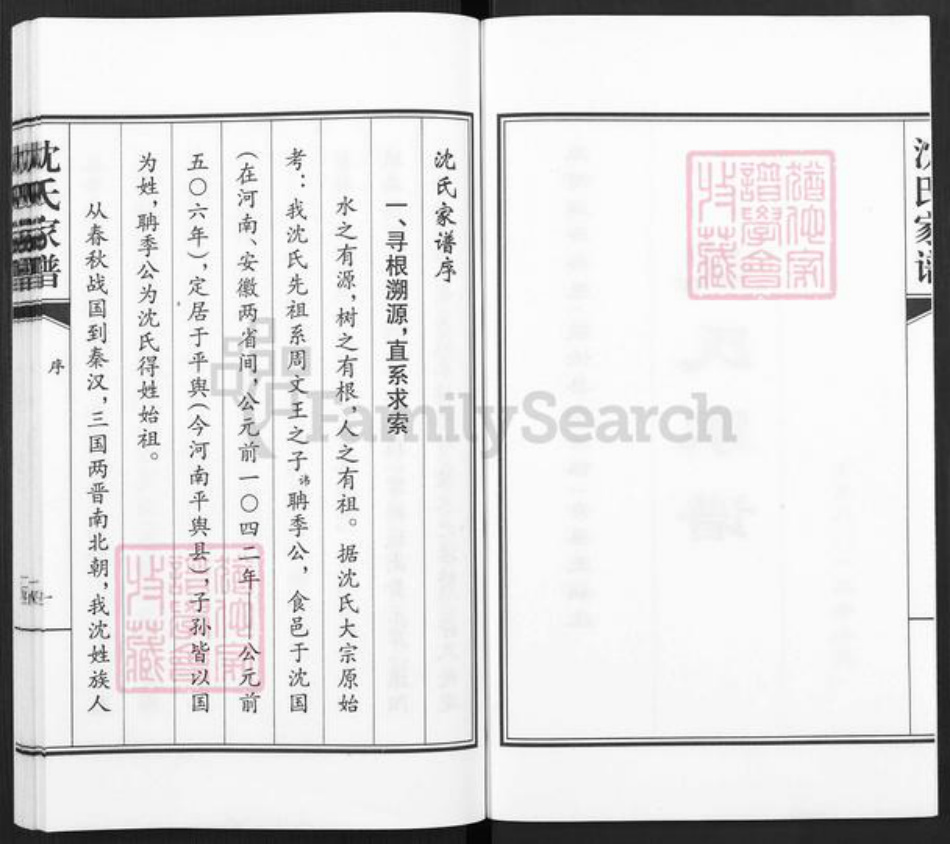 沈氏家谱
沈氏家谱序
一、寻根溯源，直系求索
水之有源，树之有根，人之有祖。据沈氏大宗原始
考：我沈氏先祖系周文王之子讳聃季公，食邑于沈国
（在河南、安徽两省间，公元前一〇四二年——公元前
五〇六年），定居于平舆（今河南平舆县），子孙皆以国
为姓，聃季公为沈氏得姓始祖。
从春秋战国到秦汉，三国两晋南北朝，我沈姓族人
沈氏家谱
序
FamilySearch